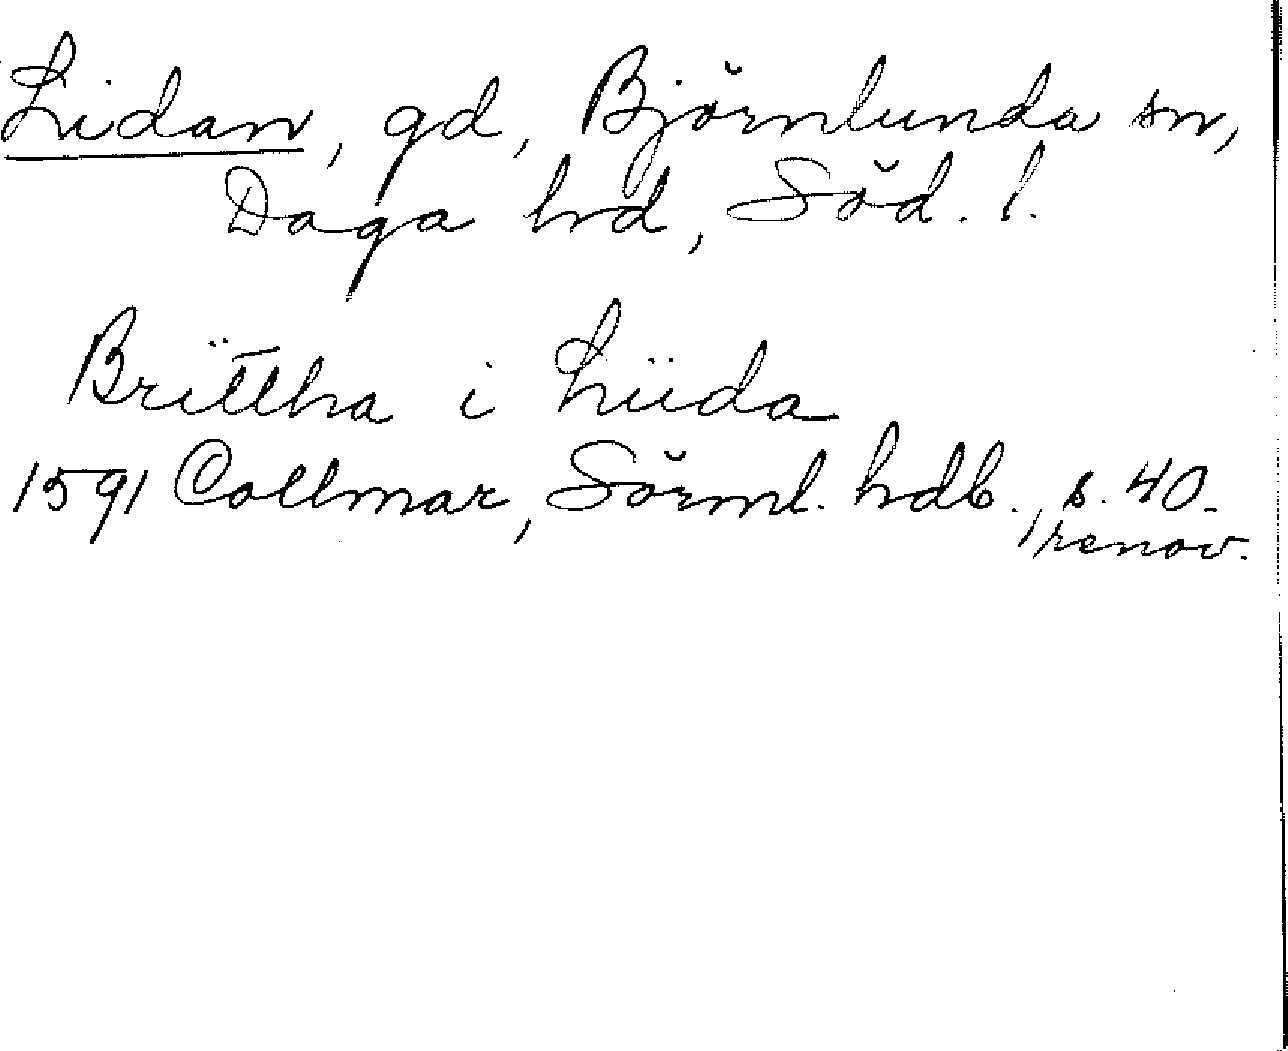 Lidan, gd, Björnlunda sn,
Daga hd, Söd. l.
Brittha i Liida
1591 Collmar, Sörml. hdb., s. 40.
renov.